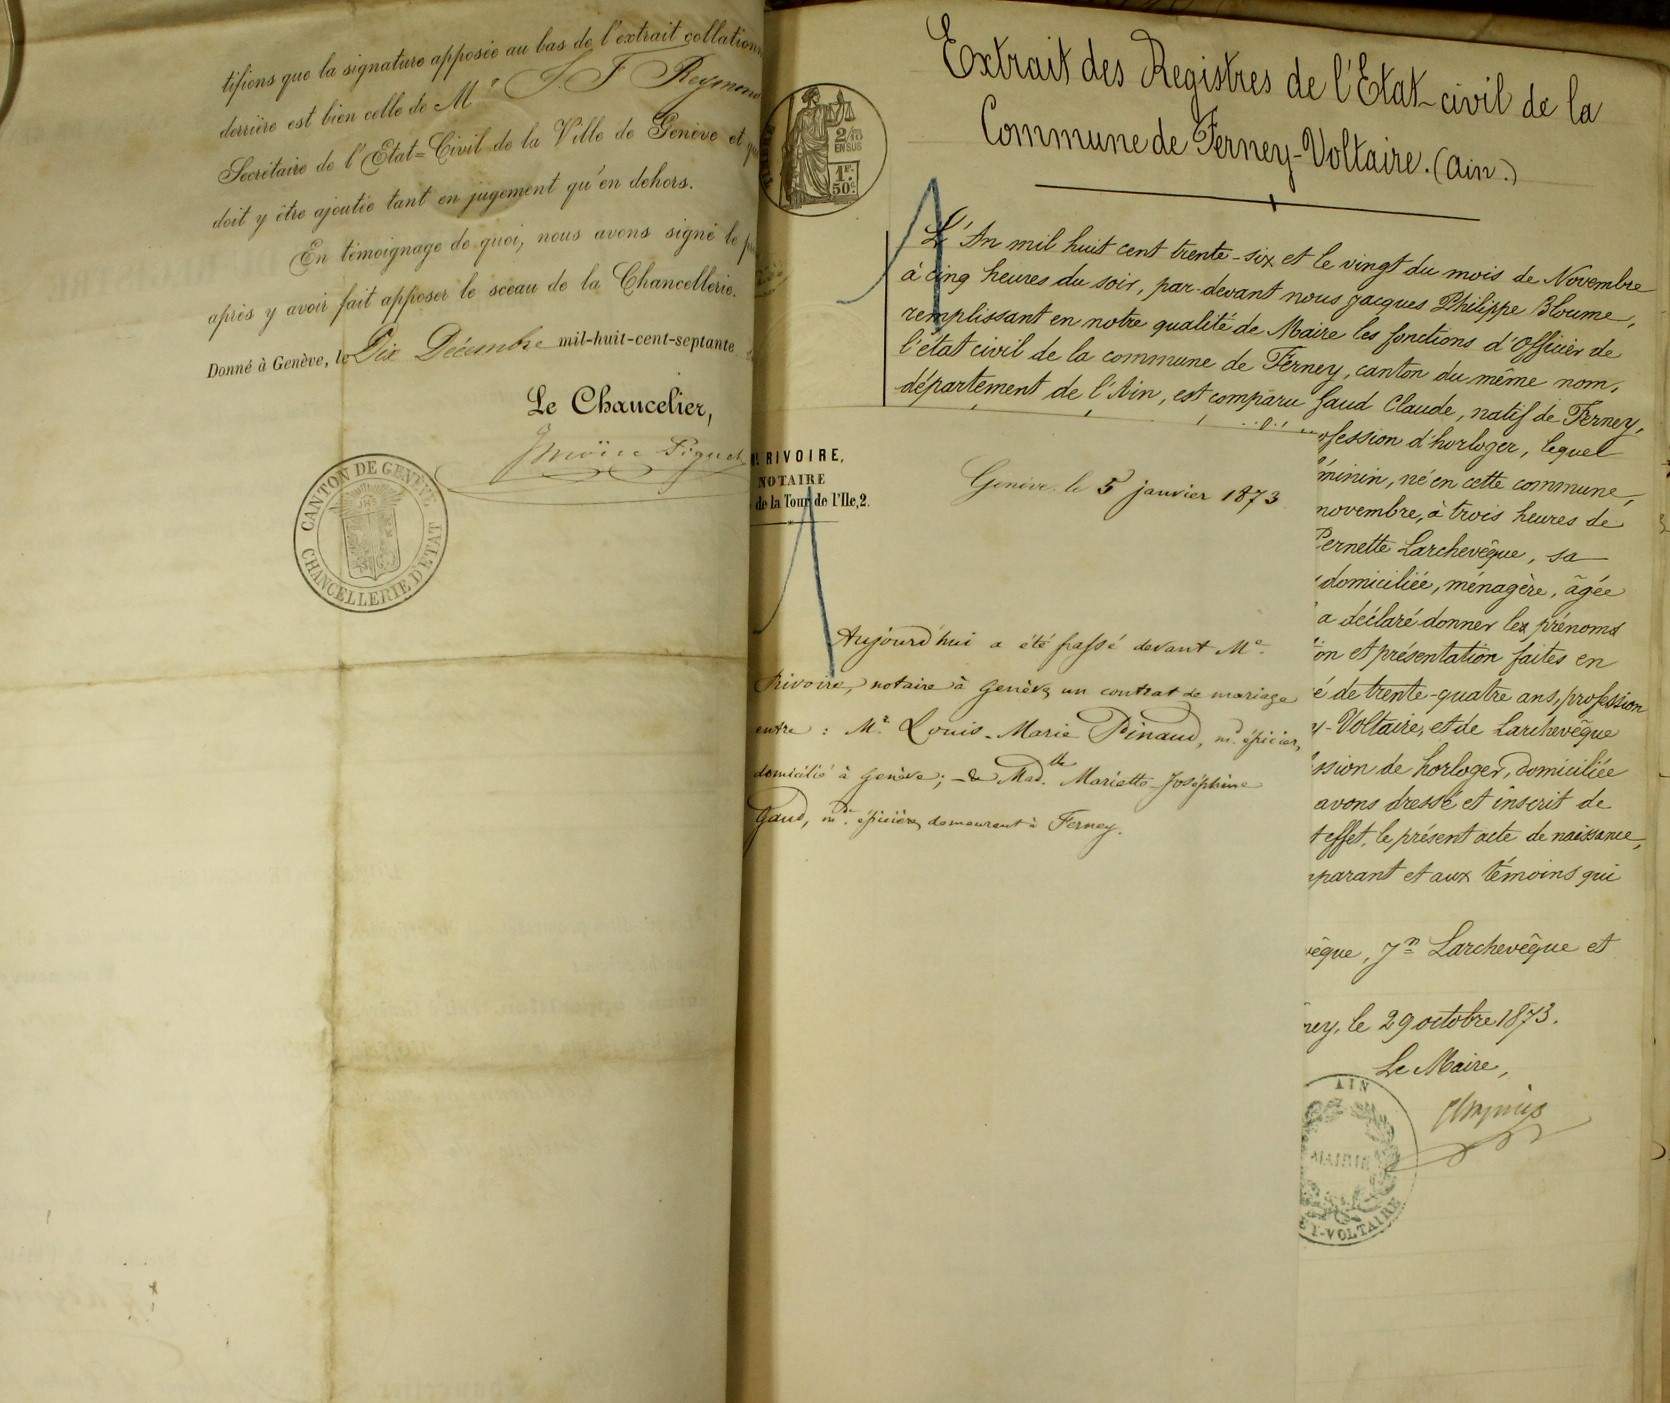 tifions que la signature apposée au bas de l'extrait collation
derrière est bien celle de Mr J. F Reymon
Secrétaire de l'Etat=Civil de la Ville de Genève et
doit y être ajoutée tant en jugement qu'en dehors.
En témoignage de quoi, nous avons signé le
après y avoir fait apposer le sceau de la Chancellerie.
Donné à Genève, le Dix Décembre mil-huit-cent-septante
Le Chancelier,
CANTON DE GENÈVE
CHANCELLERIE D'ETAT
2/10
EN SUS
1F.
50c.
Extrait des Registres de l'Etat-civil de la
Commune de Ferney-Voltaire. (Ain.)
L'An mil huit cent trente-six et le vingt du mois de Novembre
à cinq heures du soir, par-devant nous Jacques Philippe Bloume,
remplissant en notre qualité de Maire les fonctions d'Officier de
l'état civil de la commune de Ferney, canton du même nom,
département de l'Ain, est comparu Gaud Claude, natif de Ferney,
ofession d'horloger, lequel
minin, né en cette commune,
novembre, à trois heures de
Pernette Larchevêque, sa
domiciliée, ménagère, âgée
a déclaré donner les prénoms
on et présentation faites en
é de trente-quatre ans, profession
y-Voltaire, et de Larchevêque
ssion de horloger, domiciliée
avons dressé et inscrit de
t effet, le présent acte de naissance,
mparant et aux témoins qui
vêque, Jn Larchevêque et
ney, le 29 octobre 1873.
Le Maire,
AIN
MAIRIE
EY-VOLTAIRE
RIVOIRE,
NOTAIRE
de la Tour de l'Ile, 2.
Genève, le 5 janvier 1873
Aujourd'hui a été passé devant Me.
Rivoire, notaire à Genève, un contrat de mariage
entre : Mr. Louis-Marie Pinaud, md. épicier,
domicilié à Genève; - & Mad.lle Mariette-Joséphine
Gaud, mde. épicière, demeurant à Ferney.